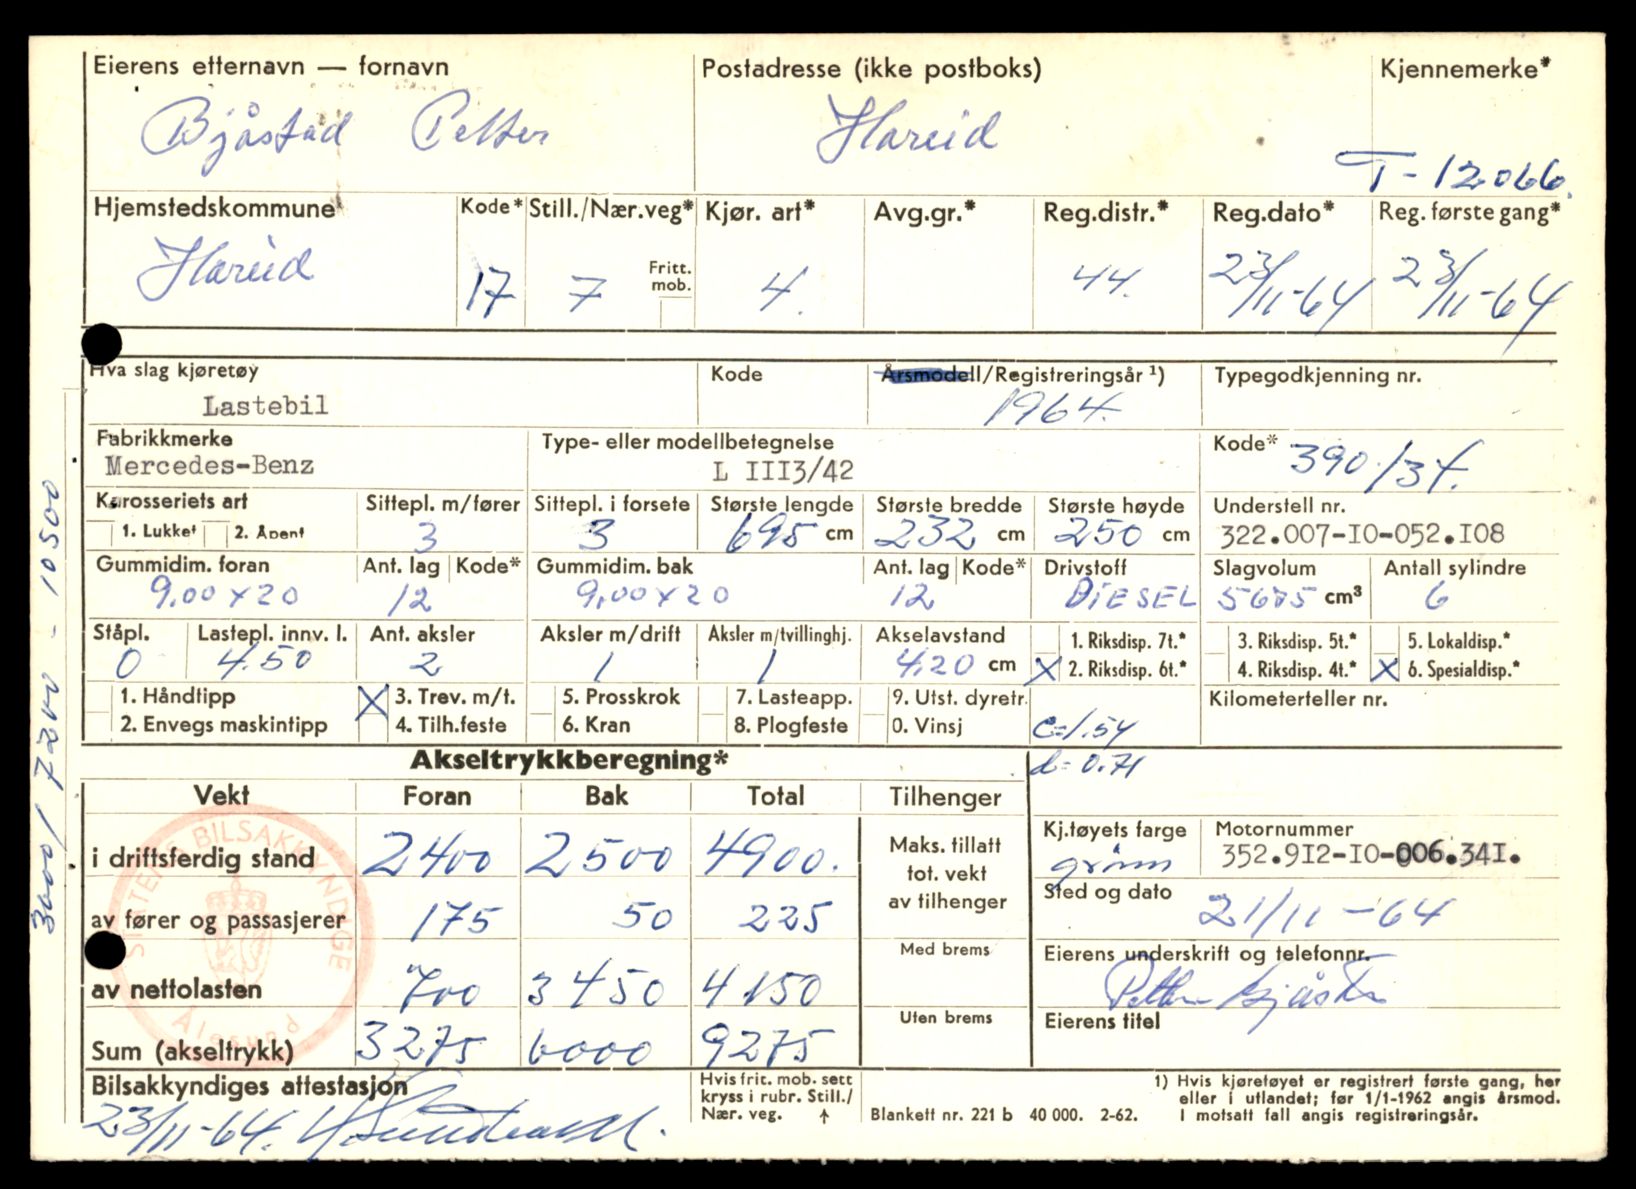 Eierens etternavn — fornavn Postadresse (ikke postboks) Kjennemerke*
Bjåstad Petter Hareid T-12066.
Hjemstedskommune Kode* Still./Nær.veg* Kjør. art* Avg.gr.* Reg.distr.* Reg.dato* Reg. første gang*
Hareid 17 7 Fritt. mob. 4. 44. 23/11-64 23/11-64
Hva slag kjøretøy Kode Årsmodell/Registreringsår 1) Typegodkjenning nr.
Lastebil 1964.
Fabrikkmerke Type- eller modellbetegnelse Kode*
Mercedes-Benz L III3/42 390./34.
Karosseriets art Sittepl. m/fører Sittepl. i forsete Største lengde Største bredde Største høyde Understell nr.
1. Lukket 2. Åpent 3 3 695 cm 232 cm 250 cm 322.007-IO-052.IO8
Gummidim. foran Ant. lag Kode* Gummidim. bak Ant. lag Kode* Drivstoff Slagvolum Antall sylindre
9,00 x 20 12 9,00 x 20 12 DIESEL 5675 cm³ 6
Ståpl. Lastepl. innv. l. Ant. aksler Aksler m/drift Aksler m/tvillinghj. Akselavstand 1. Riksdisp. 7t.* 3. Riksdisp. 5t.* 5. Lokaldisp.*
0 4.50 2 1 1 4,20 cm X 2. Riksdisp. 6t.* 4. Riksdisp. 4t.* X 6. Spesialdisp.*
1. Håndtipp X 3. Trev. m/t. 5. Prosskrok 7. Lasteapp. 9. Utst. dyretr. Kilometerteller nr.
2. Envegs maskintipp 4. Tilh.feste 6. Kran 8. Plogfeste 0. Vinsj c=1.54
Akseltrykkberegning* d=0.71
Vekt Foran Bak Total Tilhenger
i driftsferdig stand 2400 2500 4900. Maks. tillatt
tot. vekt
av tilhenger
Kj.tøyets farge Motornummer
grønn 352.9I2-IO-006.34I.
av fører og passasjerer 175 50 225 Sted og dato
21/11-64
Med brems Eierens underskrift og telefonnr.
av nettolasten 700 3450 4150 Petter Bjåstad
Uten brems Eierens titel
Sum (akseltrykk) 3275 6000 9275
Bilsakkyndiges attestasjon
23/11-64.
Hvis frit. mob. sett
kryss i rubr. Still./
Nær. veg. ↑
Blankett nr. 221 b 40 000. 2-62.
1) Hvis kjøretøyet er registrert første gang, her
eller i utlandet; før 1/1-1962 angis årsmod.
I motsatt fall angis registreringsår.
STATENS BILSAKKYNDIGE
Ålesund
3000/7200 - 10500